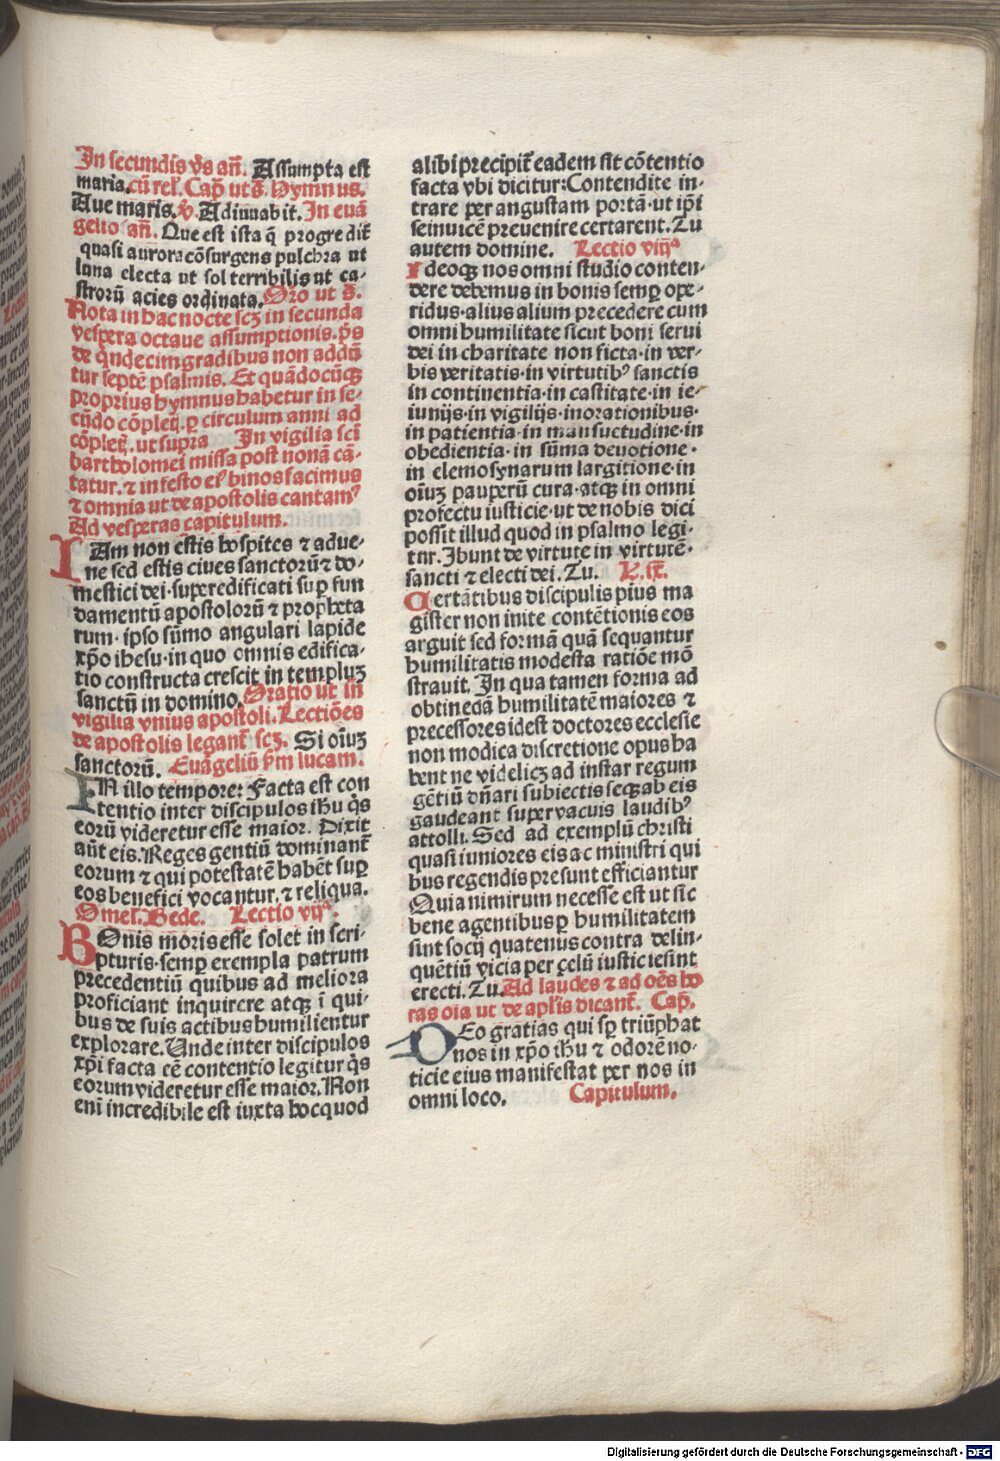 In secundis v̄s an̄. Assumpta est
maria. cū rel̄. Cap̄ ut s̄. Hymnus.
Aue maris. v̄. Adiuuabit. In euā
gelio an̄. Que est ista q̄ progredit̄
quasi aurora cōsurgens pulchra ut
luna electa ut sol terribilis ut ca-
strorū acies ordinata. Oro ut s̄.
Nota in hac nocte scꝫ in secunda
vespera octaue assumptionis. p̄s
de q̄ndecim gradibus non addū
tur septē psalmis. Et quādocūqꝫ
proprius hymnus habetur in se-
cūdo cōpletꝭ. ꝑ circulum anni ad
cōpletꝭ. ut supra In vigilia sci
bartholomei missa post nonā cā-
tatur. ⁊ in festo eiꝰ binos facimus
⁊ omnia ut de apostolis cantamꝰ
Ad vesperas capitulum.
IAm non estis hospites ⁊ adue-
ne sed estis ciues sanctorū ⁊ do-
mestici dei. superedificati suꝑ fun
damentū apostolorū ⁊ propheta
rum. ipso sūmo angulari lapide
xp̄o ihesu. in quo omnis edifica-
tio constructa crescit in templuꝫ
sanctū in domino. Oratio ut in
vigilia vnius apostoli. Lectiōes
de apostolis legant̄ scꝫ. Si oīuꝫ
sanctorū. Euāgeliū ẜm lucam.
IN illo tempore: Facta est con
tentio inter discipulos ihū q̄s
eorū videretur esse maior. Dixit
aūt eis. Reges gentiū dominant̄
eorum ⁊ qui potestatē habēt suꝑ
eos benefici vocantur. ⁊ reliqua.
Omel̄. Bede. Lectio vijᵃ.
BOnis moris esse solet in scri-
pturis. semꝑ exempla patrum
precedentiū quibus ad meliora
proficiant inquirere atqꝫ ī qui-
bus de suis actibus humilientur
explorare. Unde inter discipulos
xp̄i facta eē contentio legitur q̄s
eorum videretur esse maior. Non
eni incredibile est iuxta hoc quod
alibi precipit̄ eadem sit cōtentio
facta vbi dicitur: Contendite in-
trare per angustam portā. ut ip̄i
seinuicē preuenire certarent. Tu
autem domine. Lectio viijᵃ
Ideoqꝫ nos omni studio conten-
dere debemus in bonis semꝑ ope-
ribus. alius alium precedere cum
omni humilitate sicut boni serui
dei in charitate non ficta. in ver-
bis veritatis. in virtutibꝰ sanctis
in continentia. in castitate. in ie-
iunijs. in vigilijs. in orationibus.
in patientia. in mansuetudine. in
obedientia. in sūma deuotione.
in elemosynarum largitione. in
oīuꝫ pauperū cura. atqꝫ in omni
profectu iusticie. ut de nobis dici
possit illud quod in psalmo legi-
tur. Ibunt de virtute in virtutē.
sancti ⁊ electi dei. Tu. L. ix̄.
Certātibus discipulis pius ma
gister non inite contētionis eos
arguit sed formā quā sequantur
humilitatis modesta ratiōe mō
strauit. In qua tamen forma ad
obtinēdā humilitatē maiores ⁊
precessores idest doctores ecclesie
non modica discretione opus ha
bent ne videlicꝫ ad instar regum
gētiū dn̄ari subiectis seqꝫ ab eis
gaudeant superuacuis laudibꝰ
attolli. Sed ad exemplū christi
quasi iuniores eis ac ministri qui
bus regendis presunt efficiantur
Quia nimirum necesse est ut sic
bene agentibus ꝑ humilitatem
sint socij quatenus contra delin-
quētiū vicia per ȩelū iusticie sint
erecti. Tu. Ad laudes ⁊ ad oēs ho
ras oīa ut de ap̄lis dicant̄. Cap̄.
DEo gratias qui sꝑ triūphat
nos in xp̄o ihū ⁊ odorē no-
ticie eius manifestat per nos in
omni loco. Capitulum.
Digitalisierung gefördert durch die Deutsche Forschungsgemeinschaft - DFG